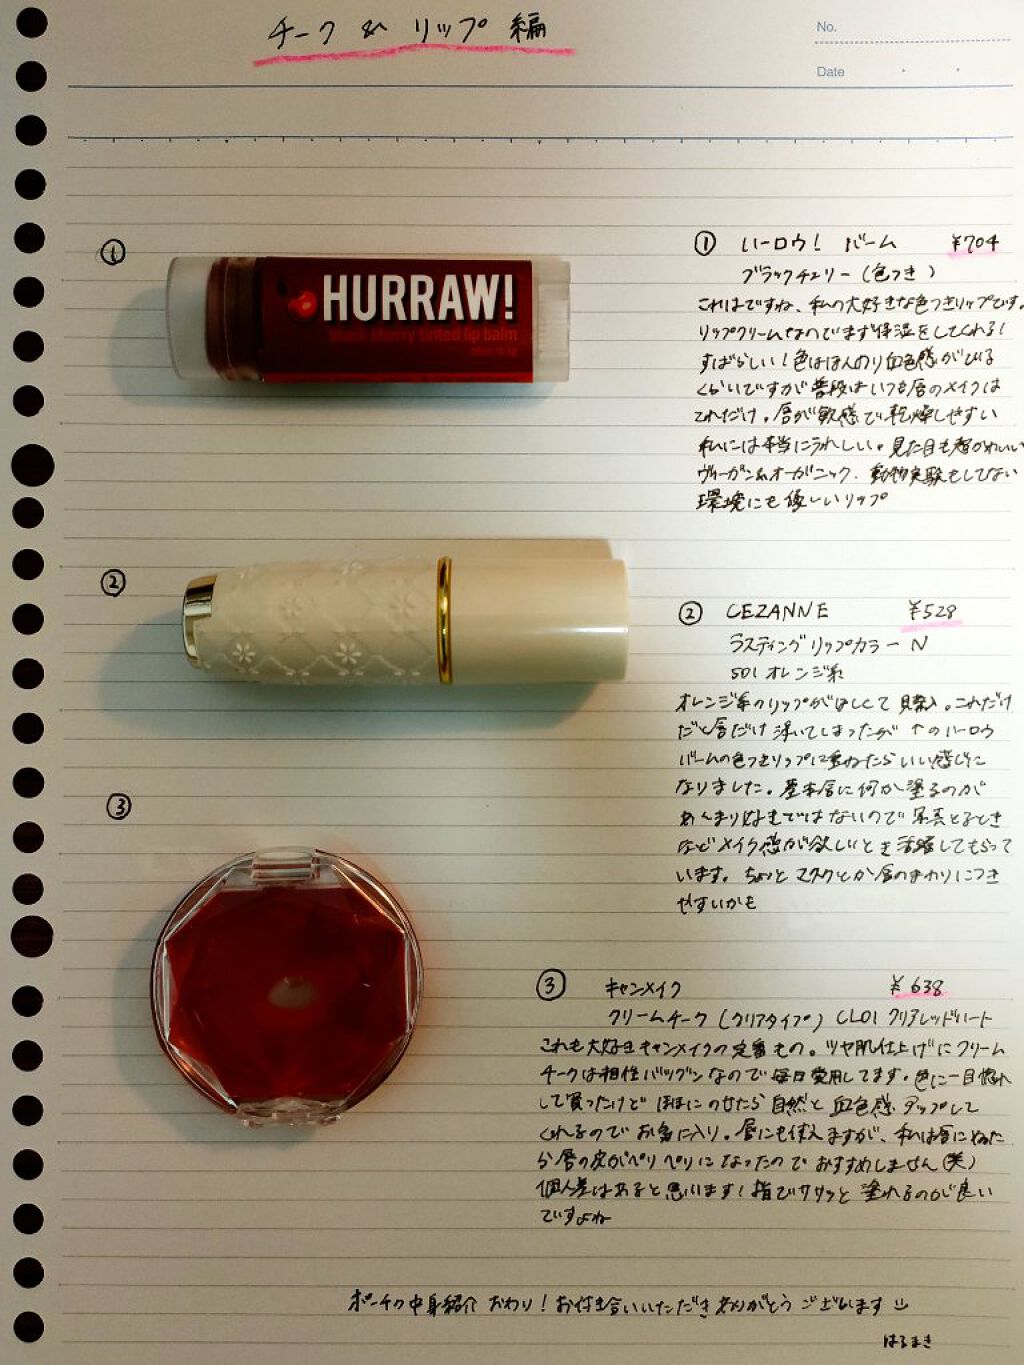 チーク & リップ 編
No.
Date
①
HURRAW!
black cherry tinted lip balm
.15oz/4.3g
① ハーロウ! バーム ¥704
ブラックチェリー (色つき)
これはですね、私の大好きな色つきリップです。
リップクリームなのでまず保湿をしてくれる!
すばらしい!色はほんのり血色感がでる
くらいですが普段はいつも唇のメイクは
これだけ。唇が敏感で乾燥しやすい
私には本当にうれしい。見た目も超かわいい
ヴィーガン&オーガニック、動物実験もしてない
環境にも優しいリップ
②
② CEZANNE ¥528
ラスティングリップカラーN
501 オレンジ系
オレンジ系のリップがほしくて購入。これだけ
だと唇だけ浮いてしまったが ↑のハーロウ
バームの色つきリップに重ねたらいい感じに
なりました。基本唇に何か塗るのが
あんまり好きではないので写真とるとき
などメイク感が欲しいとき活躍してもらって
います。ちょいとマスクとか唇のまわりにつき
やすいかも
③
③ キャンメイク ¥638
クリームチーク (クリアタイプ) CL01 クリアレッドハート
これも大好きキャンメイクの定番もの。ツヤ肌仕上げにクリーム
チークは相性バツグンなので毎日愛用してます。色に一目惚れ
して買ったけど ほほにのせたら自然と血色感アップして
くれるのでお気に入り。唇にも使えますが、私は唇にぬった
ら唇の皮がペリペリになったのでおすすめしません(笑)
個人差はあると思います!指でササッと塗れるのが良い
ですよね
ポーチの中身紹介 おわり!お付き合いいただきありがとうございます
はるまき